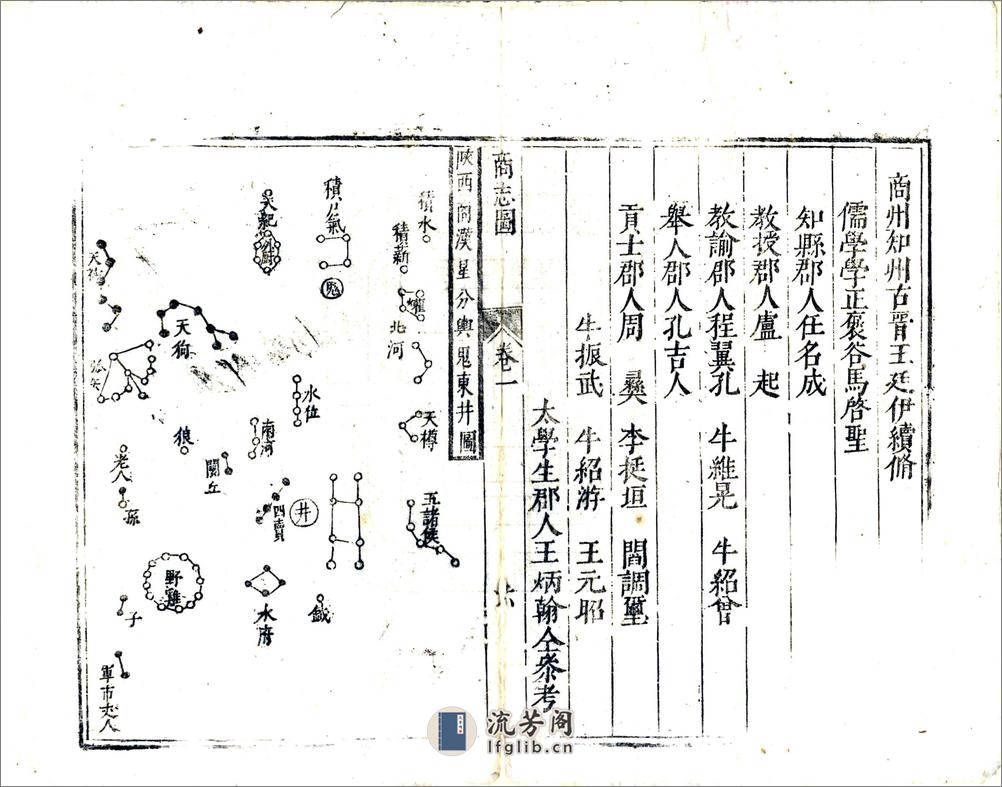 商州知州古晋王廷伊續脩
儒學學正褒谷馬啓聖
知縣郡人任名成
教授郡人盧 起
教諭郡人程翼孔 牛維晃 牛紹曾
舉人郡人孔吉人
貢士郡人周 彞 李挺垣 閻調璽
牛振武 牛紹游 王元昭
太學生郡人王炳翰仝叅考
商志圖
卷一
陝西商漢星分輿鬼東井圖
積水
積薪
爟
北河
天樽
五諸侯
積尸氣
鬼
水位
南河
四瀆
井
鉞
水府
外厨
天狗
狼
闕丘
野雞
天社
弧矢
老人
孫
子
軍市丈人
流芳阁
lfglib.cn